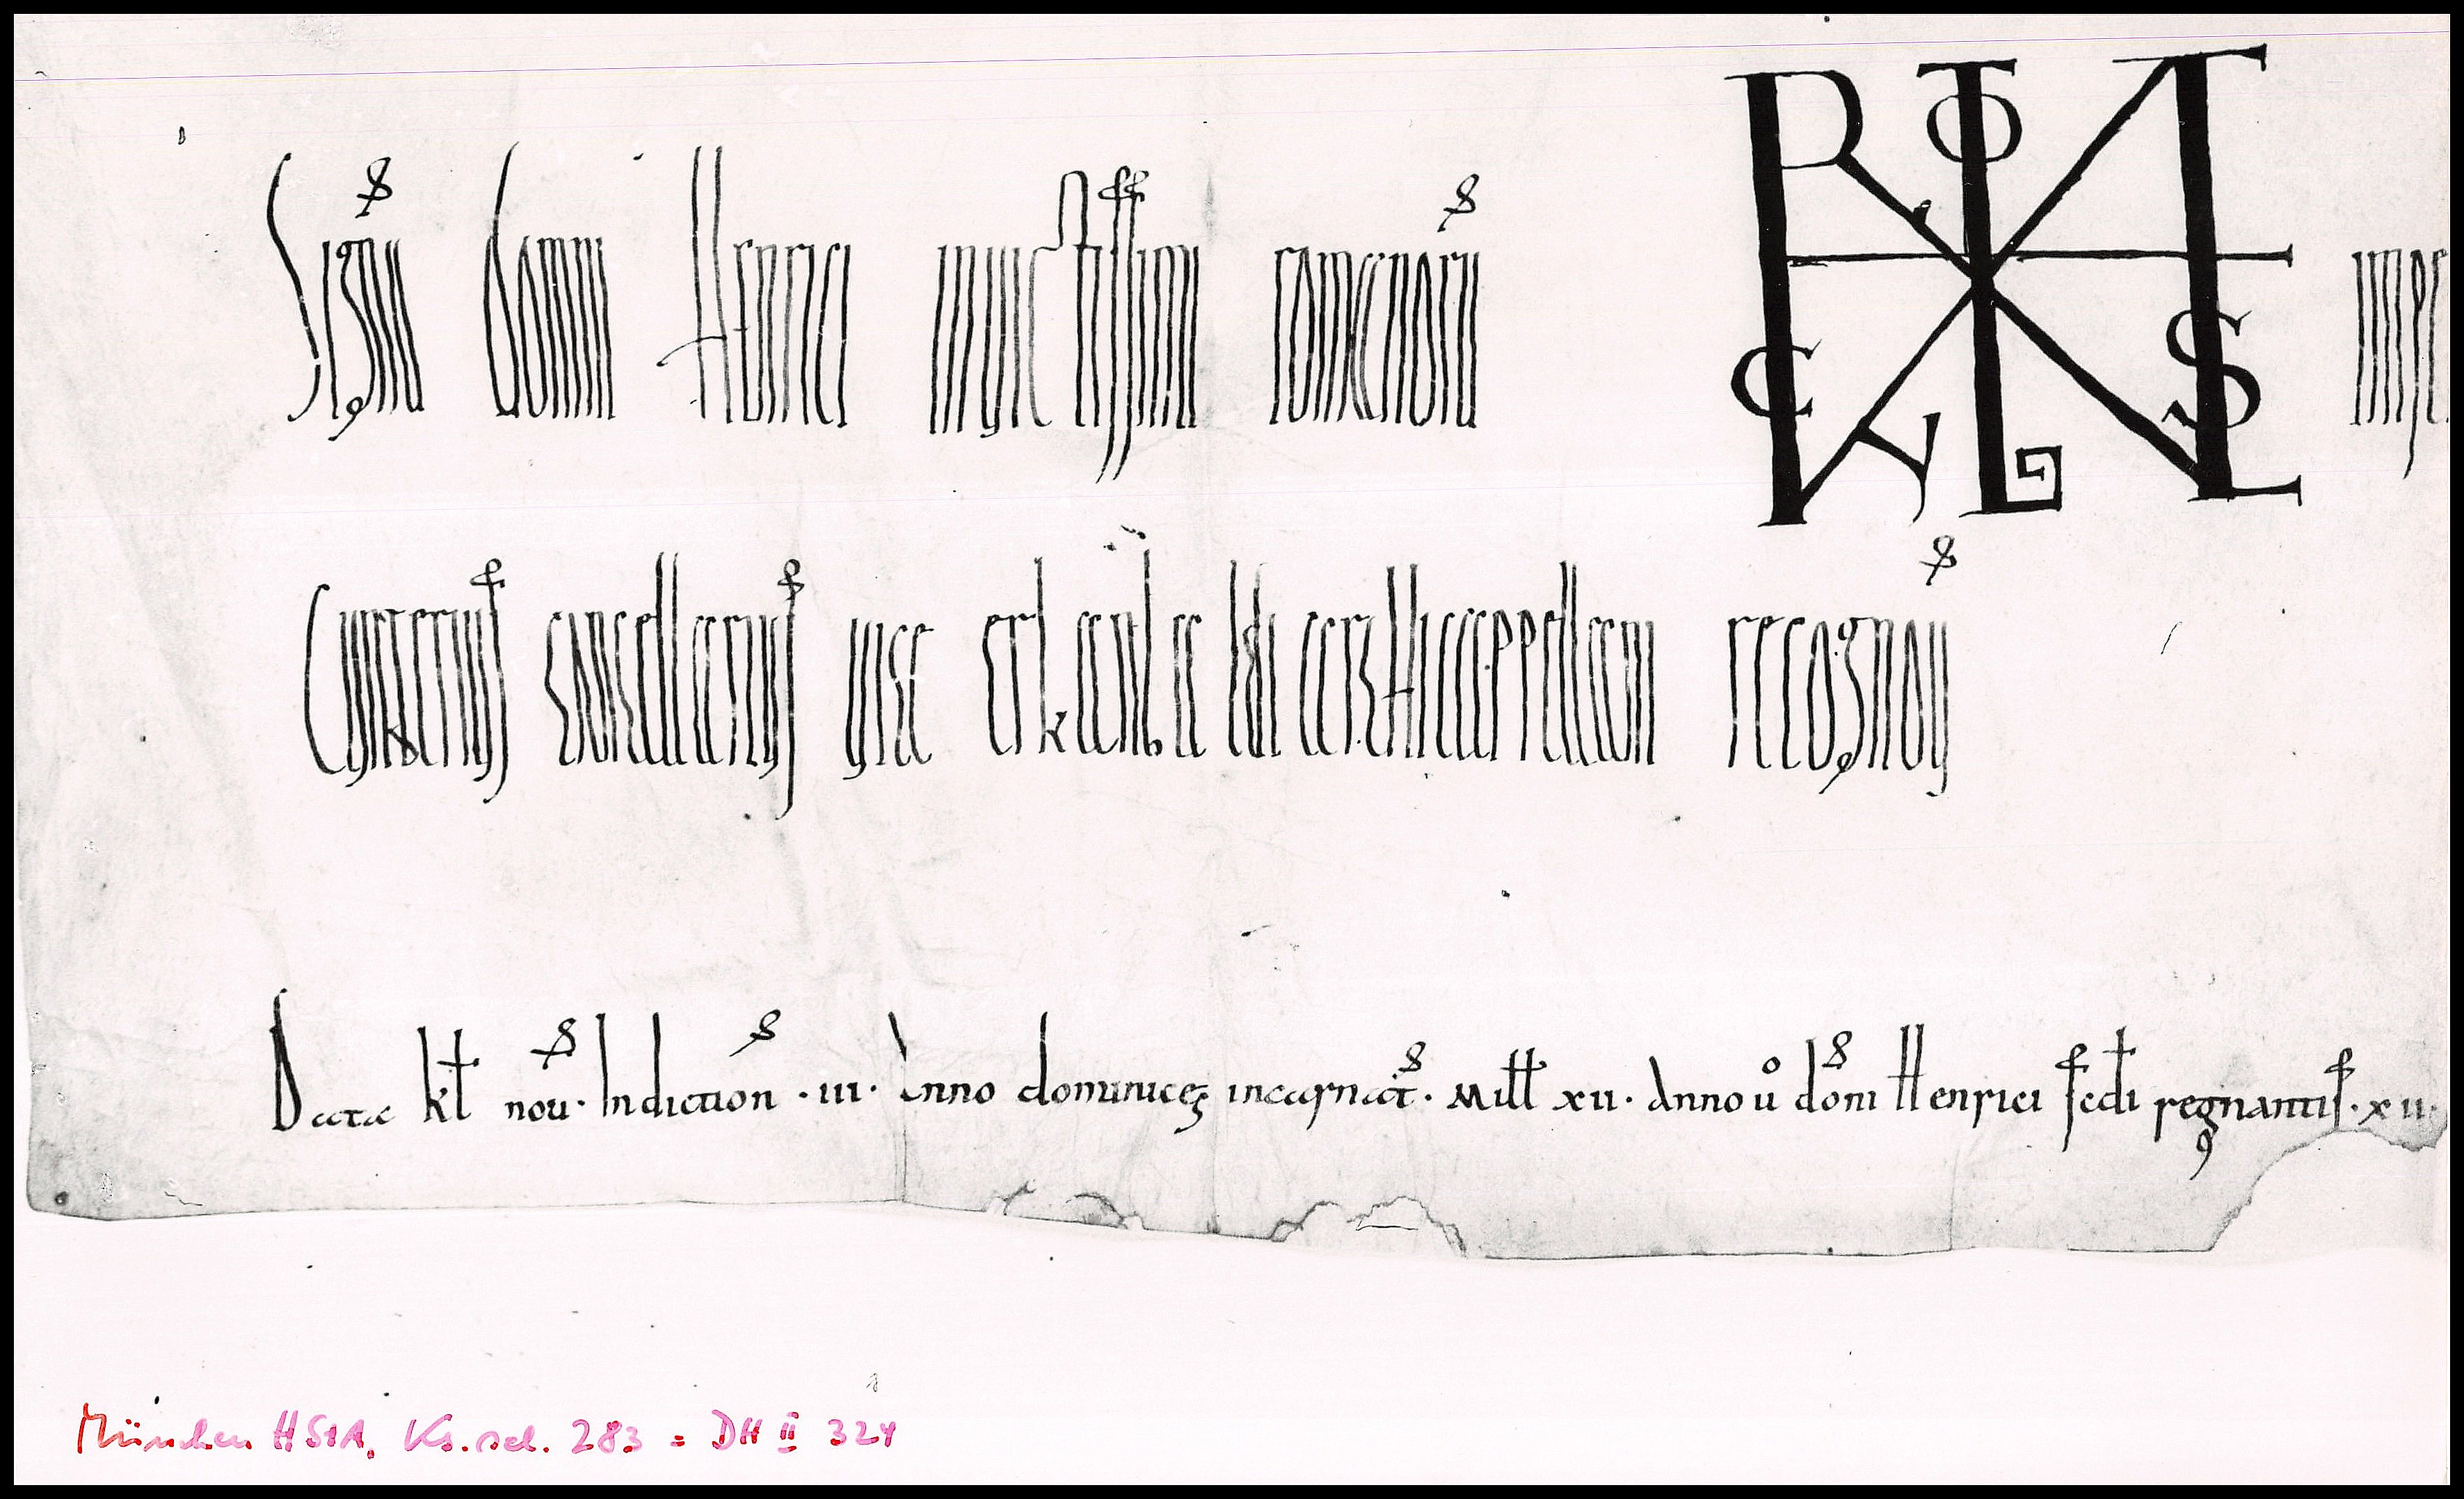 Signu domni Heinrici inuictissimi romanoru impe
Guntherius cancellarius uice erkanbaldi archicappellani recognoui
Data kł nou. Indiction .iii. Anno dominicę incarnat. Mill xii. Anno ů domi Heinrici scdi regnantis. xii.
München HStA, Ks. sel. 283 = DH II 324